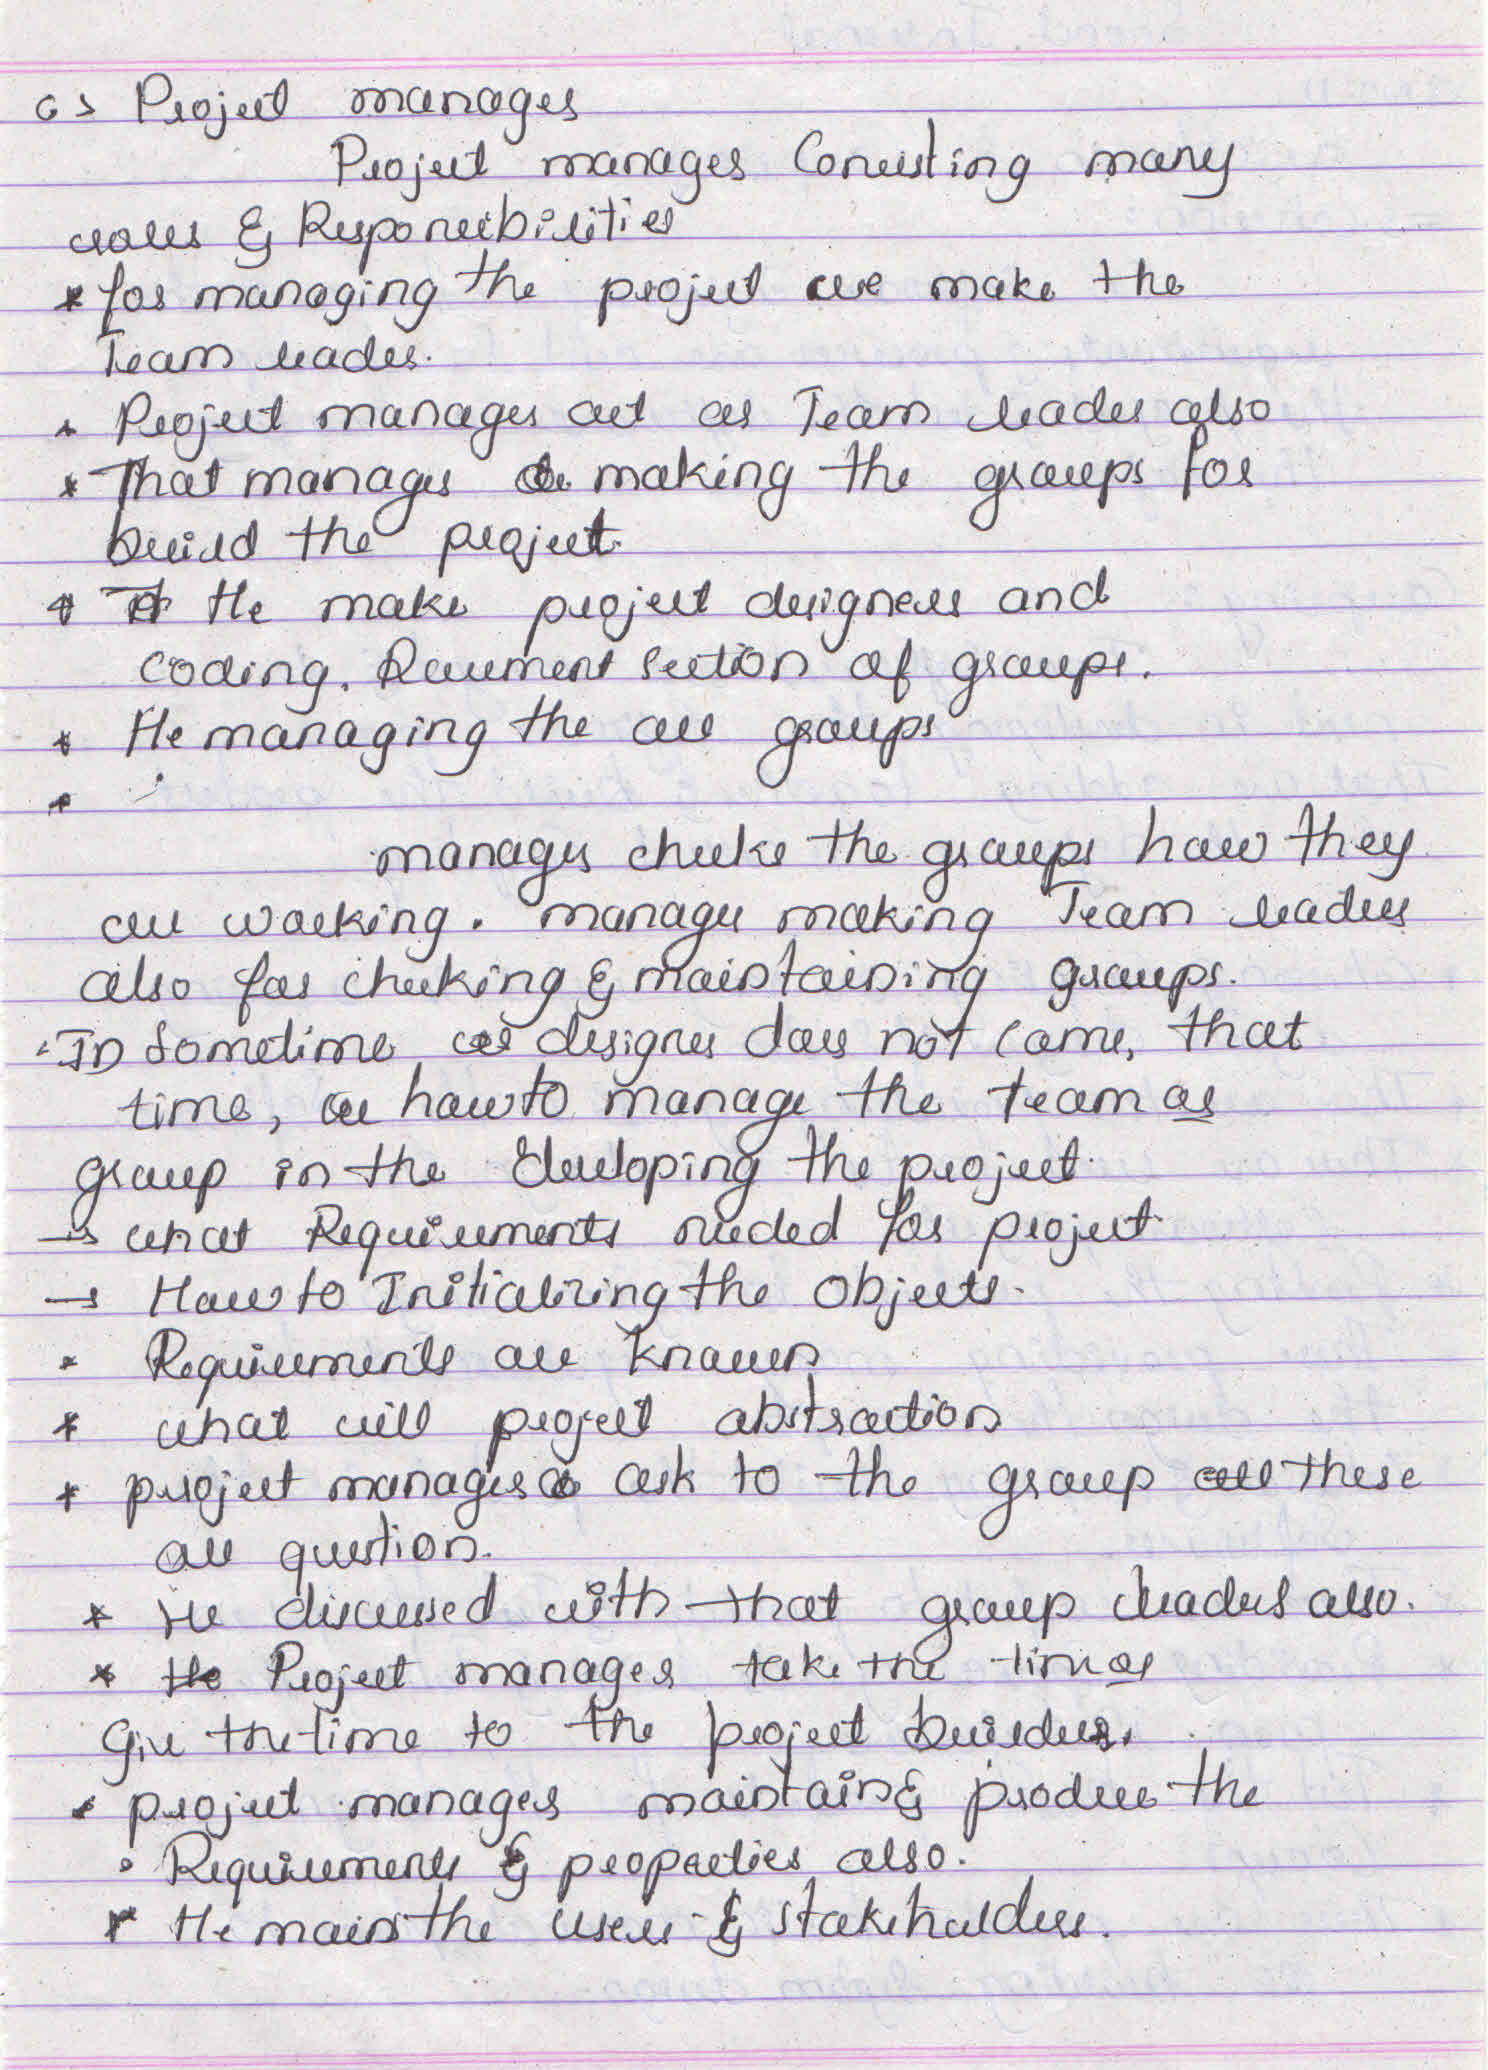 6> Project manager
Project manager Consisting many
roles & Responsibilities
* for managing the project we make the
Team leader.
* Project manager act as Team leader also
* That manager making the groups for
build the project.
* He make project designers and
coding. Document section of groups.
* He managing the all groups
*
manager checks the groups how they
are working. manager making Team leaders
also for checking & maintaining groups.
In sometime designer does not come, that
time, how to manage the team as
group in the developing the project.
→ what Requirements needed for project.
→ How to Initializing the objects.
* Requirements are known
* what will project abstraction
* project manager ask to the group these
all question.
* He discussed with that group leaders also.
* Project manager take the time as
Give the time to the project builders.
* project manager maintain & produce the
• Requirements & properties also.
* He main the users & stakeholders.